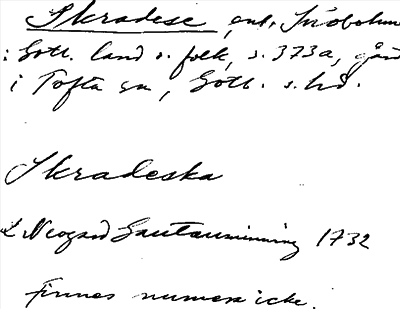 Skradese, enl. Snöbohm
i Gotl. land o. folk, s. 373a, gård
i Tofta sn, Gotl. s. hd.
Skradeska
Neogard 1732
finnes numera icke.